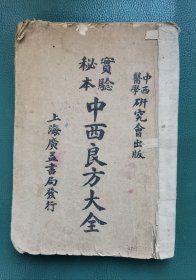 中西
醫學
研究會出版
實驗
秘本
中西良方大全
上海廣益書局發行